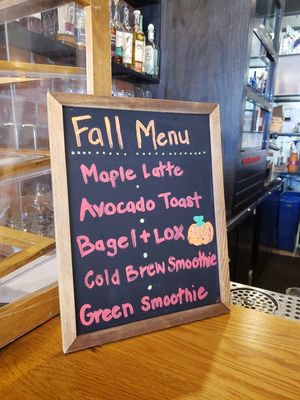 Fall Menu
Maple Latte
Avocado Toast
Bagel + Lox
Cold Brew Smoothie
Green Smoothie